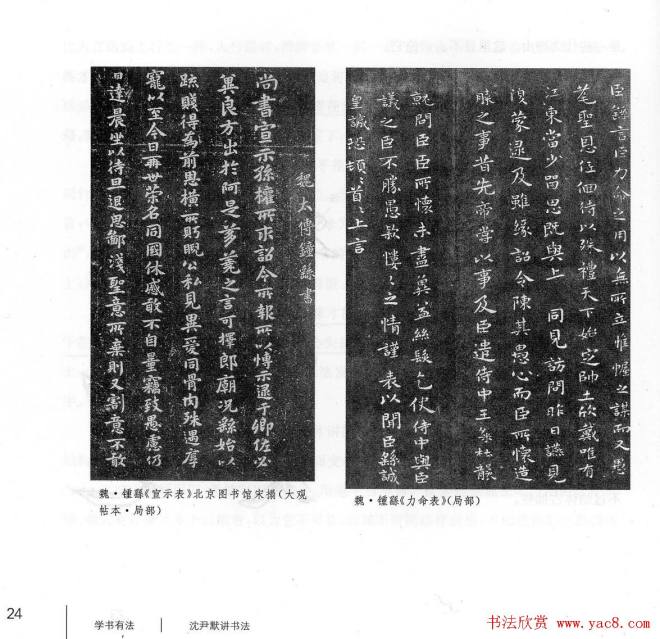 魏太傅鍾繇書
尚書宣示孫權所求詔令所報所以博示逮于卿佐必
冀良方出於阿是芻蕘之言可擇郎廟况繇始以
踈賤得為前恩橫所盻睨公私見異愛同骨肉殊遇厚
寵以至今日再世榮名同國休慼敢不自量竊致愚慮仍
日達晨坐以待旦退思鄙淺聖意所棄則又割意不敢
魏·锺繇《宣示表》北京图书馆宋搨(大观
帖本·局部)
臣繇言臣力命之用以無所立惟幄之謀而又愚
耄聖恩低佪待以殊禮天下始定帥土欣戴唯有
江東當少留思既與上 同見訪問昨日讌見
復蒙逮及雖緣詔令陳其愚心而臣所懷造
膝之事昔先帝嘗以事及臣遣侍中王粲杜襲
就問臣臣所懷未盡冀益絲髮乞使侍中與臣
議之臣不勝愚款慺〻之情謹表以聞臣繇誠
皇誠恐頓〻首〻上言
魏·锺繇《力命表》(局部)
24
学书有法
沈尹默讲书法
书法欣赏 www.yac8.com